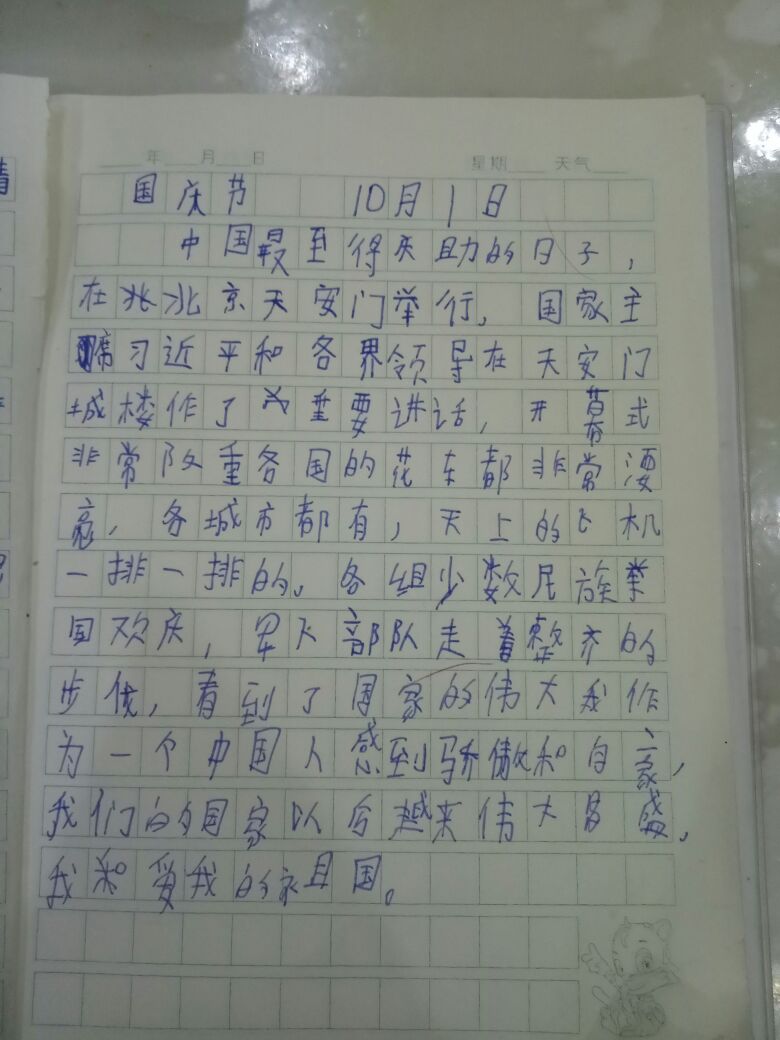 年 月 日 星期 天气
国庆节 10月1日
中国最至得天助的日子，
在北京天安门举行，国家主
席习近平和各界领导在天安门
城楼作了重要讲话，开幕式
非常隆重各国的花车都非常漂
亮，各城市都有，天上的飞机
一排一排的。各组少数民族举
国欢庆，军人部队走着整齐的
步伐，看到了国家的伟大我作
为一个中国人感到骄傲和自豪，
我们的国家以后越来伟大昌盛，
我和爱我的祖国。